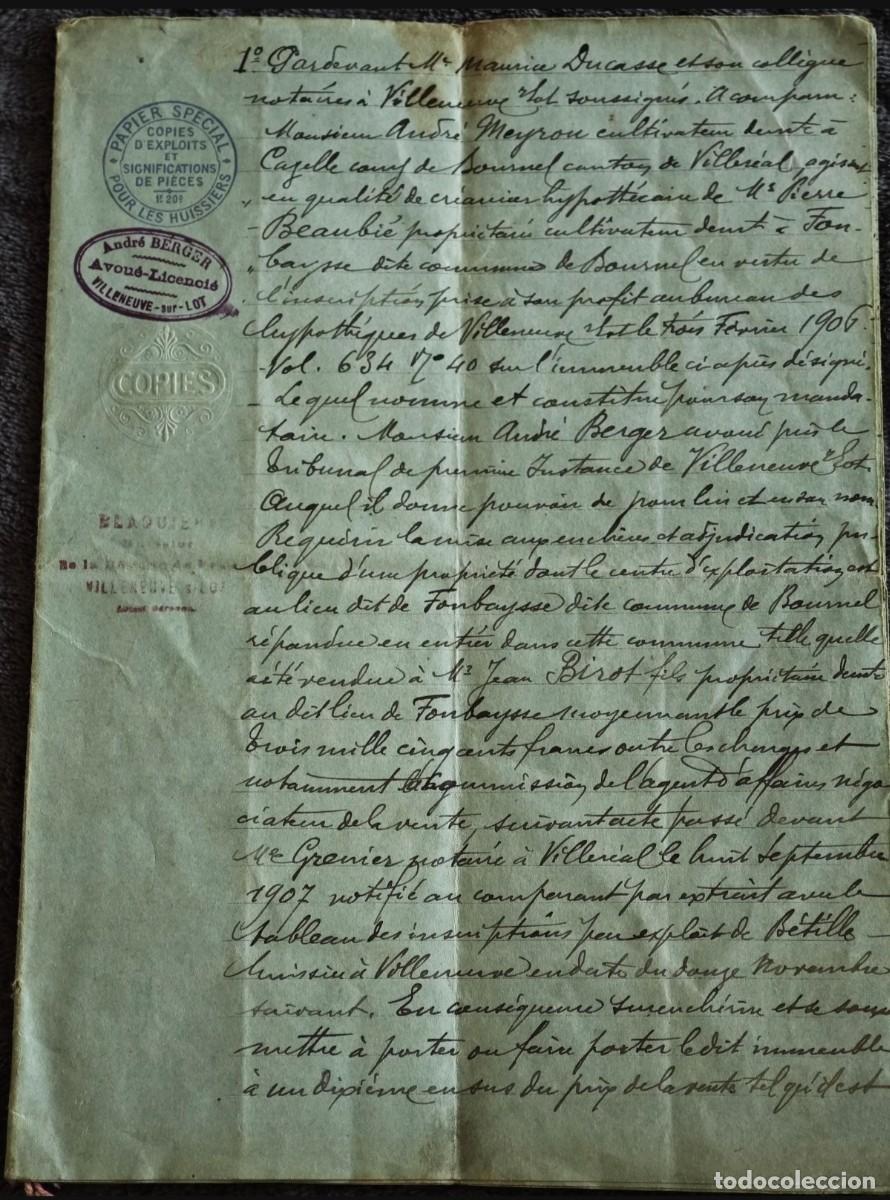 PAPIER SPÉCIAL
COPIES
D'EXPLOITS
ET
SIGNIFICATIONS
DE PIÈCES
1F 20c
POUR LES HUISSIERS
André BERGER
Avoué-Licencié
VILLENEUVE-sur-LOT
COPIES
VILLENEUVE s/LOT
1º Pardevant Me Maurice Ducasse et son collègue
notaires à Villeneuve s/Lot soussignés. A comparu :
Monsieur André Meyrou cultivateur demt à
Cazelle comg de Bournel canton de Villeréal, agissant
en qualité de créancier hypothécaire de Mr Pierre
Beaubié propriétaire cultivateur demt à Fon-
baysse dite commune de Bournel en vertu de
l'inscription prise à son profit au bureau des
hypothèques de Villeneuve s/Lot le trois Février 1906
Vol. 634 Nº 40 sur l'immeuble ci après désigné.
Lequel nomme et constitue pour son manda-
taire. Monsieur André Berger avoué près le
Tribunal de première Instance de Villeneuve s/Lot
Auquel il donne pouvoir de pour lui et en son nom
Requérir la mise aux enchères et adjudication pu-
blique d'une propriété dont le centre d'exploitation est
au lieu dit de Fonbaysse dite commune de Bournel
répandue en entier dans cette commune telle quelle
a été vendue à Mr Jean Birot fils propriétaire demt
au dit lieu de Fonbaysse moyennant le prix de
trois mille cinq cents francs outre les charges et
notamment la commission de l'agent d'affaires négo
ciateur de la vente, suivant acte passé devant
Me Grenier notaire à Villeréal le huit Septembre
1907 notifié au comparant par extrait avec le
tableau des inscriptions par exploit de Bétille
huissier à Villeneuve en date du douze Novembre
suivant. En conséquence surenchérir et se sou
mettre à porter ou faire porter ledit immeuble
à un dixième en sus du prix de la vente tel qu'il est
todocoleccion